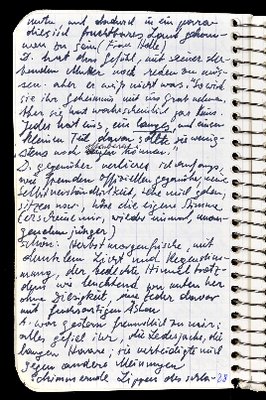 nuten und dadurch in ein parra-
diesisch fruchtbares Land gekom-
men zu sein (Frau Holle)
D. hat das Gefühl, mit seiner ster-
benden Mutter noch reden zu müs-
sen. aber er weiß nicht was. Es wird
sie ihr Geheimnis mit ins Grab nehmen.
Aber sie hat wahrscheinlich gar keins.
Jedes hat eins, ein und einen
kleinen Teil davon sollte sie wenig-
stens noch können."
D. gegenüber verliere ich anfangs,
wie fremden offiziellen gegenüber, meine
Selbstverständlichkeit, rede viel daher,
sitzen nur, höre die eigene Stimme
(erscheine mir, wieder einmal, unan-
genehm jünger)
Schön: Herbstmorgenfrische, mit
dunklem Licht und Regenstim-
mung, der bedeckte Himmel trotz-
dem wie leuchtend von unten her
ohne Zierigkeit, jeder davor
mit
A. war gestern freundlich zu mir;
alles gefiel ihr, die Lederjacke, die
langen Haare; sie verteidigte mich
gegen andere Meinungen
Schimmernde Lippen des
28